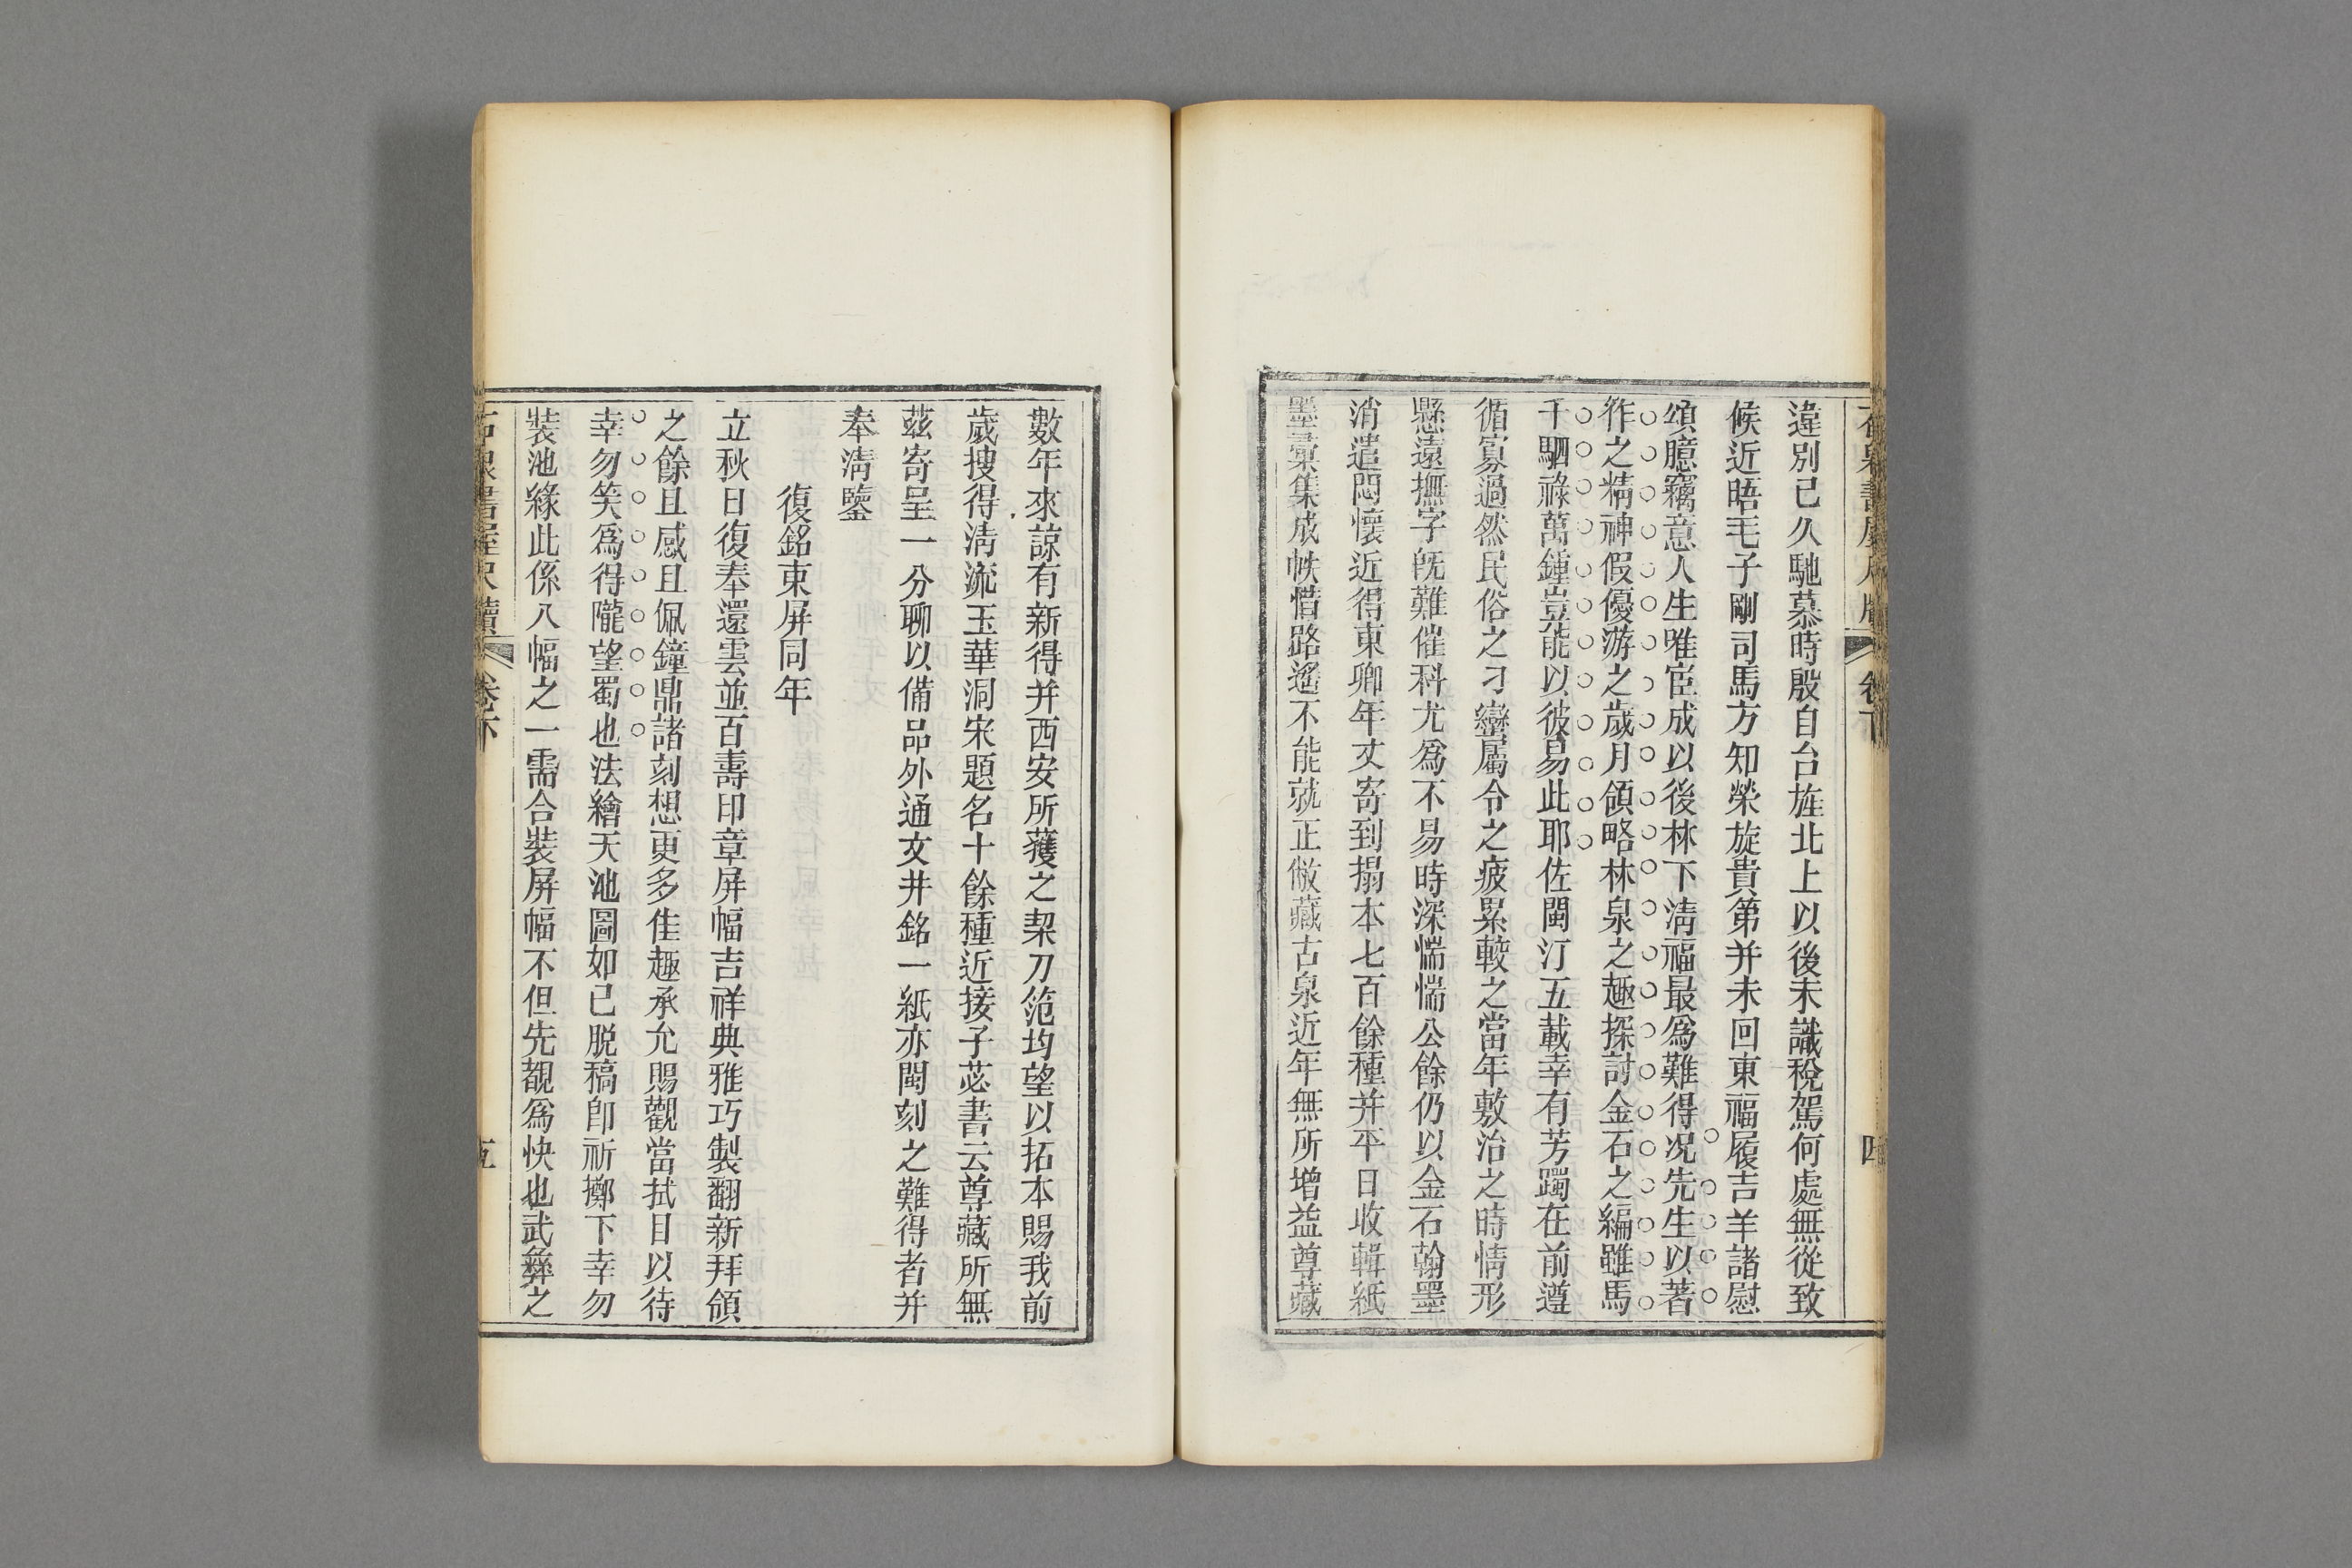 違別已久馳慕時殷自台旌北上以後未識稅駕何處無從致
候近晤毛子剛司馬方知榮旋貴第并未回東福履吉羊諸慰
頌臆竊意人生唯宦成以後林下淸福最爲難得况先生以著
作之精神假優游之歲月領略林泉之趣探討金石之編雖馬
千駟祿萬鍾豈能以彼易此耶佐閩汀五載幸有芳躅在前遵
循寡過然民俗之刁蠻屬令之疲累較之當年敷治之時情形
懸遠撫字旣難催科尤爲不易時深惴惴公餘仍以金石翰墨
消遣悶懷近得東卿年丈寄到搨本七百餘種并平日收輯紙
墨彙集成帙惜路遙不能就正敝藏古泉近年無所增益尊藏
卷下
四
數年來諒有新得并西安所獲之栔刀笵均望以拓本賜我前
歲捜得淸流玉華洞宋題名十餘種近接子苾書云尊藏所無
茲寄呈一分聊以備品外通文井銘一紙亦閩刻之難得者并
奉淸鑒
復銘東屏同年
立秋日復奉還雲並百壽印章屏幅吉祥典雅巧製翻新拜領
之餘且感且佩鐘鼎諸刻想更多佳趣承允賜觀當拭目以待
幸勿笑爲得隴望蜀也法繪天池圖如已脱稿卽祈擲下幸勿
裝池緣此係八幅之一需合裝屏幅不但先覩爲快也武彝之
卷下
五